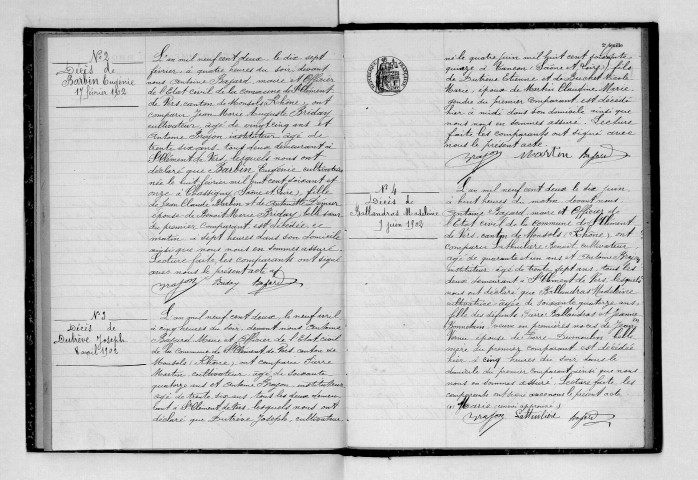 N° 2
Décès de
Barbin Eugénie
17 février 1902
L'an mil neuf cent deux le dix sept
février à quatre heures du soir devant
nous Antoine Bajard maire et Officier
de l'Etat civil de la commune de St Clément
de Vers canton de Monsols Rhône, ont
comparu Jean Marie Auguste Briday
cultivateur âgé de vingt cinq ans et
Antoine Brajon instituteur âgé de
trente six ans tous deux demeurant à
St Clément de Vers, lesquels nous ont
déclaré que Barbin Eugénie cultivatrice
née le huit février mil huit cent soixante et
onze à Chassigny (Saône et Loire), fille
de Jean Claude Barbin et de Antoinette
épouse de Benoit Marie Briday, belle sœur
du premier comparant est décédée ce
matin à sept heures dans son domicile
ainsi que nous nous en sommes assuré.
Lecture faite, les comparants ont signé
avec nous le présent acte
Brajon Briday Bajard
N° 3
Décès de
Dutrève Joseph
8 avril 1902
L'an mil neuf cent deux le neuf avril
à cinq heures du soir, devant nous Antoine
Bajard Maire et Officier de l'Etat civil
de la Commune de St Clément de Vers, canton de
Monsols (Rhône), ont comparu Pierre
Martin cultivateur âgé de soixante
quatorze ans et Antoine Brajon instituteur
âgé de trente six ans, tous les deux demeu-
rant à St Clément de Vers, lesquels nous ont
déclaré que Dutrève Joseph, cultivateur
2e feuille
né le quatre juin mil huit cent
quinze à (Saône et Loire), fils
de Dutrève Etienne et de
Marie, époux de Martin Claudine Marie,
gendre du premier comparant est décédé
hier à midi dans son domicile ainsi que
nous nous en sommes assuré. Lecture
faite, les comparants ont signé avec
nous le présent acte.
Brajon Martin Bajard
N° 4
Décès de
Ballandras Madeleine
7 juin 1902
L'an mil neuf cent deux le six juin
à huit heures du matin devant nous
Antoine Bajard, maire et Officier de
l'Etat civil de la commune de St Clément
de Vers, canton de Monsols (Rhône), ont
comparu Benoit, cultivateur,
âgé de quarante et un ans et Antoine Brajon
instituteur âgé de trente sept ans, tous les
deux demeurant à St Clément de Vers, lesquels
nous ont déclaré que Ballandras Madeleine
cultivatrice âgée de soixante quatorze ans
fille des défunts Pierre Ballandras et Jeanne
veuve en premières noces de
épouse de Pierre Dumontin, belle
mère du premier comparant est décédée
hier à cinq heures du soir dans le
domicile du premier comparant ainsi que nous
nous en sommes assuré. Lecture faite, les
comparants ont signé avec nous le présent acte
Brajon Bajard